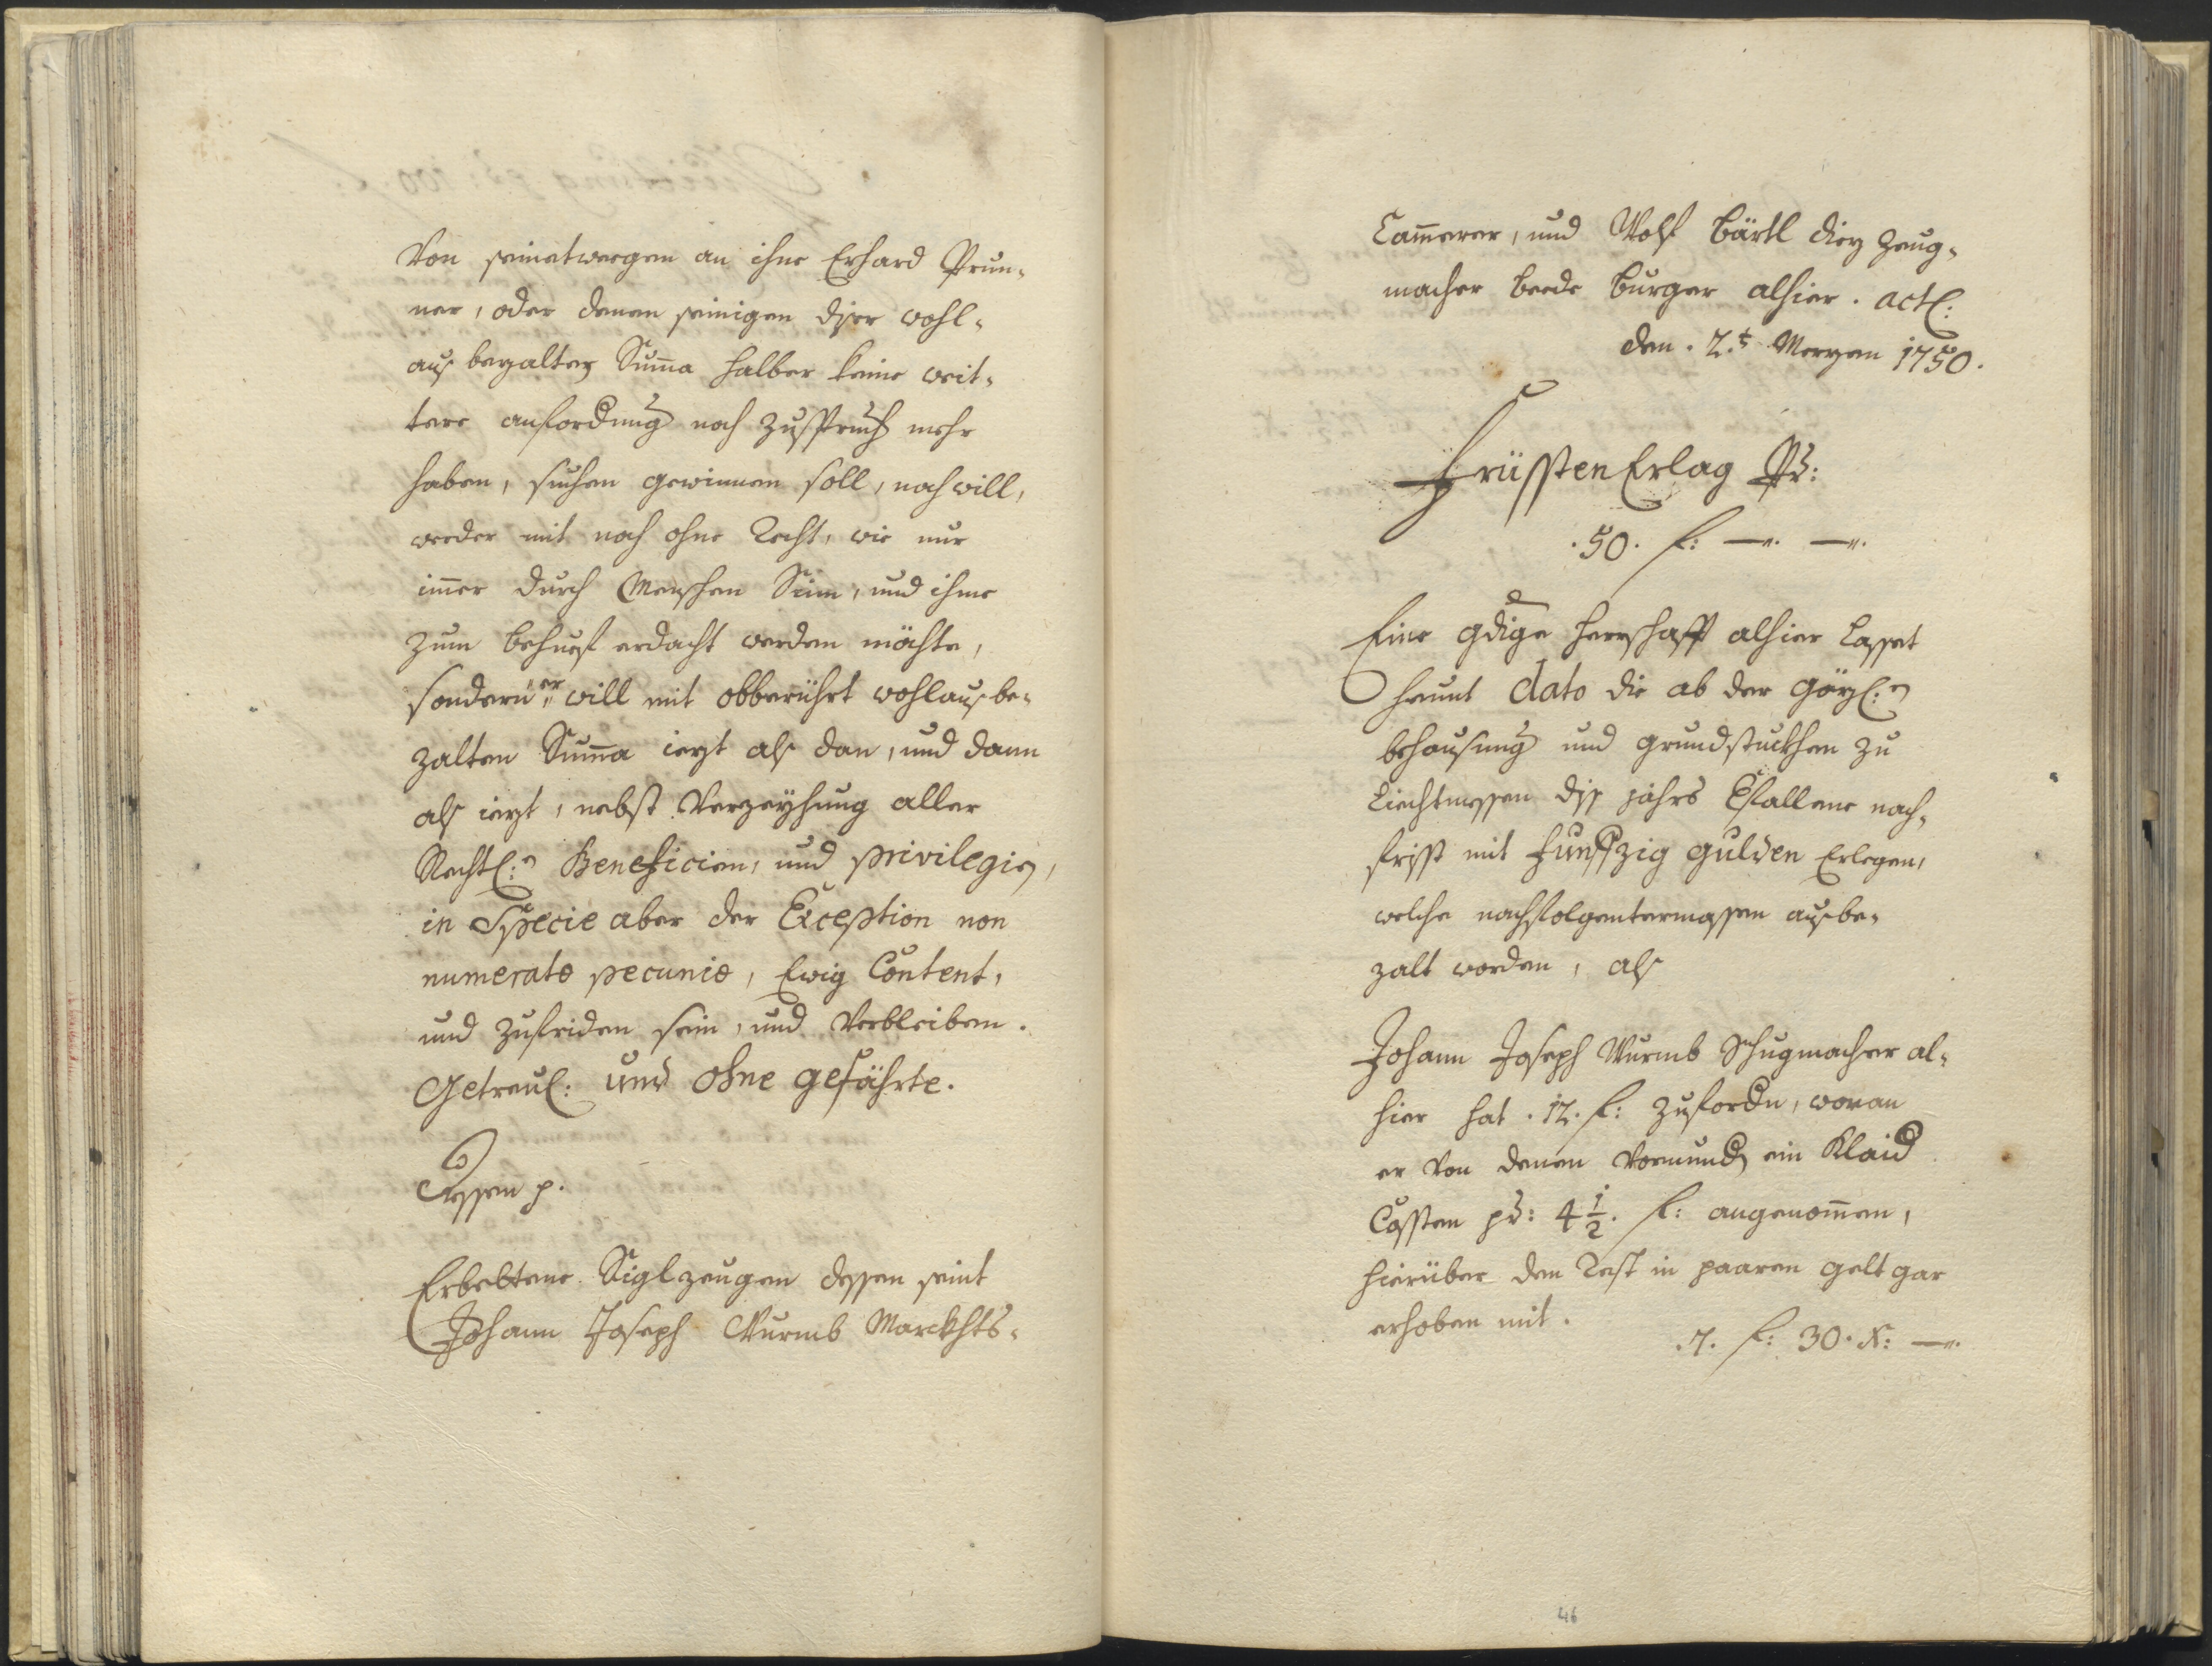 Von seinetweegen an ihne Erhard Prun-
ner, oder denen seinigen diser wohl-
aus bezalter Suma halber keine weit-
tere anforderung noch Zuspruch mehr
haben, suchen gewinnen soll, noch will,
weeder mit noch ohne Recht, wie nur
imer durch Menschen Sinn, und ihme
zum behueff erdacht werden möchte,
sondern er will mit obberührt wohlausbe-
zalten Suma iezt als dan, und dann
als iezt, nebst Verzeyhung aller
Rechtl: Beneficien, und privilegien,
in Specie aber der Exception non
numeratæ pecuniæ, Ewig Content,
und zufriden sein, und Verbleiben.
Getreul: und ohne gefährte.
Dessen p.
Erbettene Siglzeugen dessen seint
Johann Joseph Wurmb Marckhts-
Cammerer, und Wolf Bärtl Diez Zeug-
macher beede burger alhier. actl:
den. 2.t Merzen 1750.
Früssten Erlag Pr:
.50. f: —. —.
Eine gdige herrschafft alhier Lasset
heunt dato die ab der Görzl:
behausung und grundstuckhen zu
Liechtmessen diss jahrs Efallene nach-
frist mit Funffzig gulden Erlegen,
welche nachfolgentermassen ausbe-
zalt worden, als
Johann Joseph Wurmb Schugmacher al-
hier hat .12. f: zufordern, woran
er Von denen Vormund ein Klaid
Cossten pr: 4 1/2. f: angenommen,
hierüber den Rest in paaren gelt gar
erhoben mit.
.7. f: 30. x: —.
46